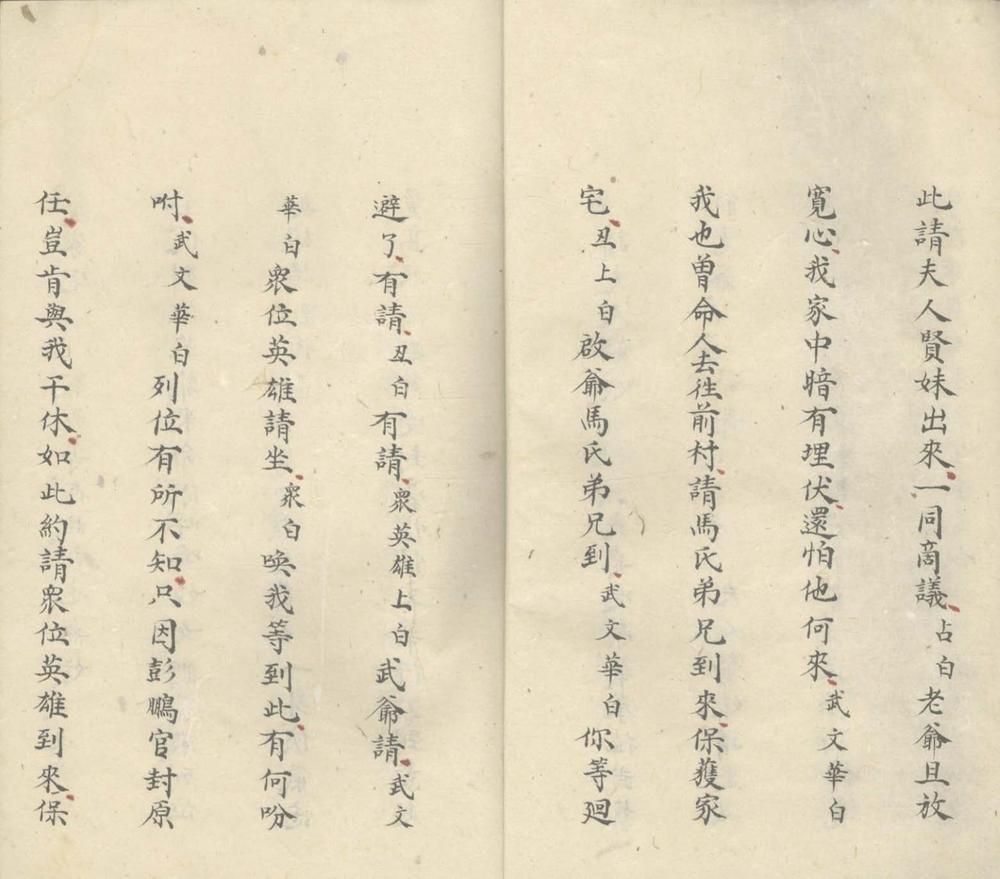 此請夫人賢妹出來一同啇議占白老爺且放
寬心我家中暗有埋伏還怕他何來武文華白
我也曽命人去徃前村請馬氏弟兄到來保䕶家
宅丑上白啟爺馬氏弟兄到武文華白你等廻
避了有請丑白有請衆英雄上白武爺請武文
華白衆位英雄請坐衆白喚我等到此有何吩
咐武文華白列位有所不知只因彭鵬官封原
任豈肯與我干休如此約請衆位英雄到來保